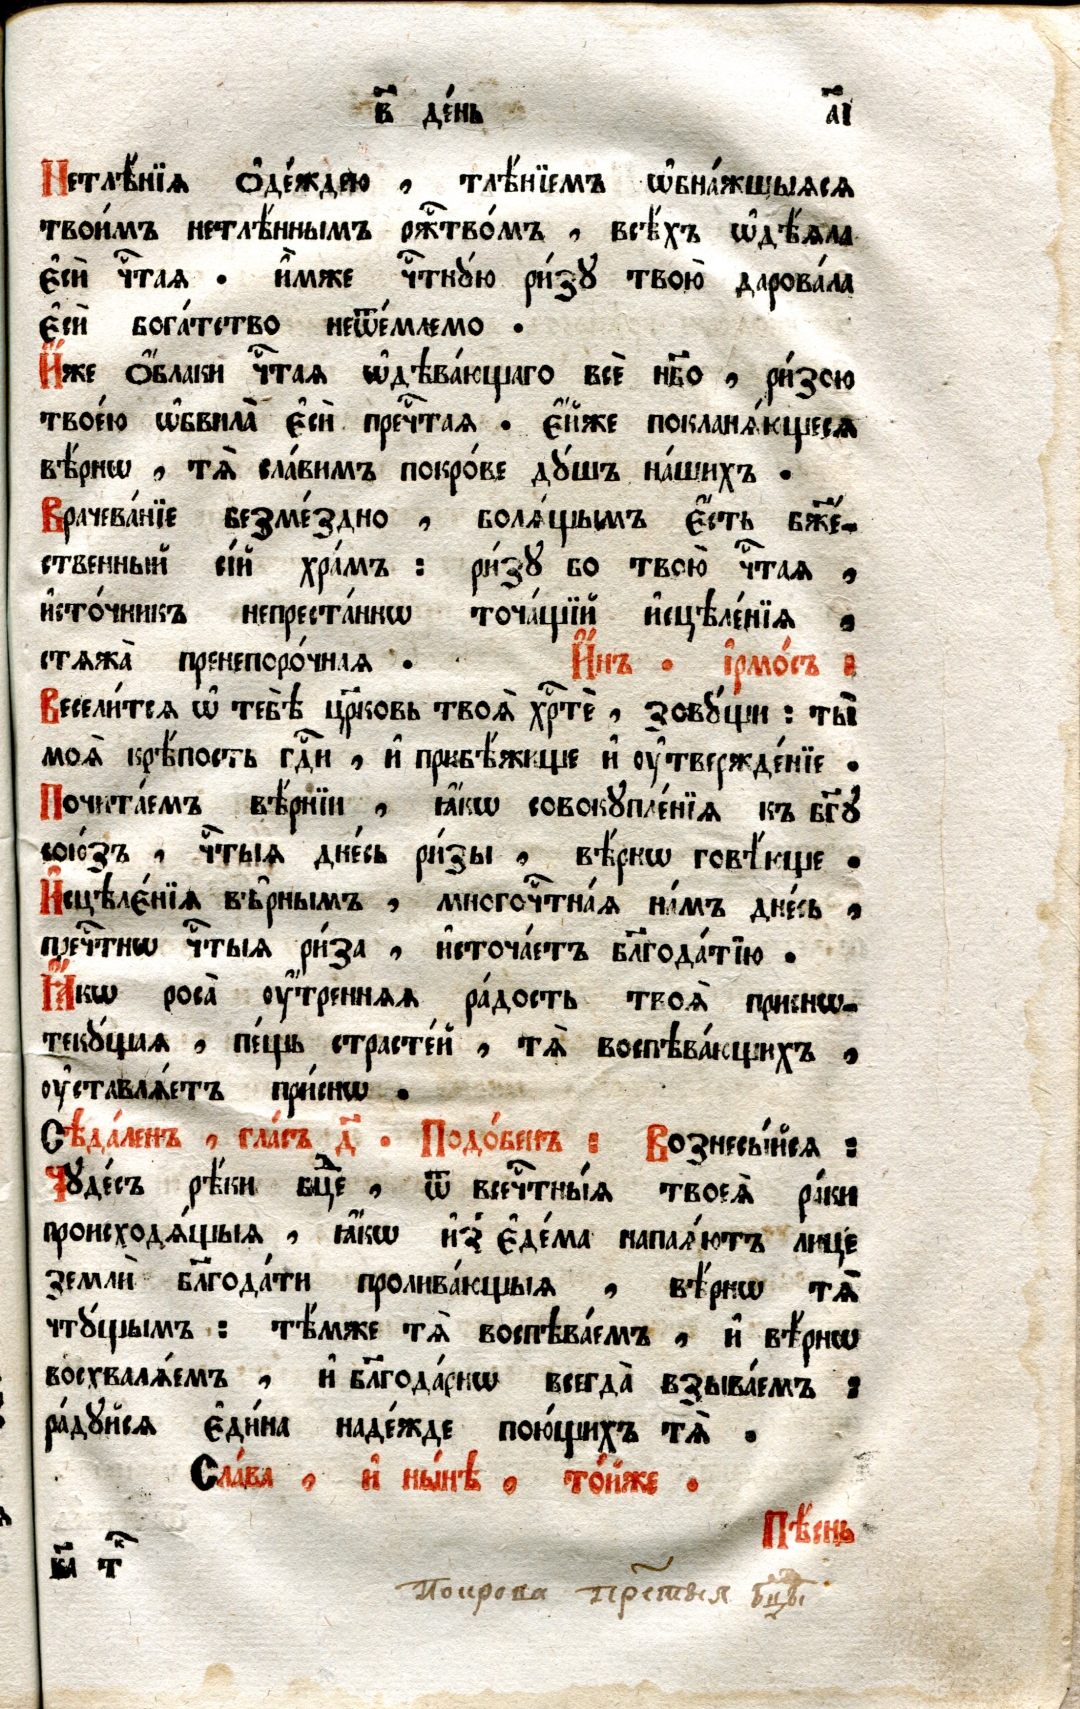 в҃ де́нь а҃і
Нетлѣ́нїѧ ѻ҆де́ждею , тлѣ́нїемъ ѡ҆бна́жшыѧсѧ
твои́мъ нетлѣ́ннымъ рж҃тво́мъ , всѣ́хъ ѡ҆дѣ́ѧла
є҆сѝ чⷭ҇таѧ . и҆́мже чⷭ҇тнꙋ́ю ри́зꙋ твою̀ дарова́ла
є҆сѝ бога́тство неѿе́млемо .
И҆́же ѻ҆́блаки чⷭ҇таѧ ѡ҆дѣва́ющаго всѐ нб҃о , ри́зою
твое́ю ѡ҆бвила̀ є҆сѝ пречⷭ҇таѧ . є҆́йже покланѧ́ющесѧ
вѣ́рнѡ , тѧ̀ сла́вимъ покро́ве дꙋ́шъ на́шихъ .
Врачева́нїе безме́здно , болѧ́щымъ є҆́сть бж҃е́-
ственный сі́й хра́мъ : ри́зꙋ бо твою̀ чⷭ҇таѧ ,
и҆сто́чникъ непреста́ннѡ точа́щїй и҆сцѣле́нїѧ ,
стѧжа̀ пренепоро́чнаѧ . И҆́нъ . і҆рмо́съ :
Весели́тсѧ ѡ҆ тебѣ̀ цр҃ковь твоѧ̀ хрⷭ҇тѐ , зовꙋ́щи : ты̀
моѧ̀ крѣ́пость гдⷭ҇и , и҆ прибѣ́жище и҆ ᲂу҆твержде́нїе .
Почита́емъ вѣ́рнїи , ꙗ҆́кѡ совокꙋпле́нїѧ къ бг҃ꙋ
сою́зъ , чⷭ҇тыѧ дне́сь ри́зы , вѣ́рнѡ говѣ́юще .
И҆сцѣле́нїѧ вѣ̑рнымъ , многочⷭ҇тна́ѧ на́мъ дне́сь ,
пречⷭ҇тнѡ чⷭ҇тыѧ ри́за , и҆сточа́етъ блг҃ода́тїю .
Ꙗ҆́кѡ роса̀ ᲂу҆́треннѧѧ ра́дость твоѧ̀ приснѡ-
текꙋ́щаѧ , пе́щь страсте́й , тѧ̀ воспѣва́ющихъ ,
ᲂу҆ставлѧ́етъ при́снѡ .
Сѣда́ленъ , гла́съ д҃ . Подо́бенъ : Вознесы́йсѧ :
Чꙋде́съ рѣ́ки бцⷣе , ѿ всечⷭ҇тны́ѧ твоеѧ̀ ра́ки
происходѧ́щыѧ , ꙗ҆́кѡ и҆з̾ є҆де́ма напаѧ́ютъ лицѐ
землѝ блг҃ода́ти пролива́ющыѧ , вѣ́рнѡ тѧ̀
чтꙋ́щымъ : тѣ́мже тѧ̀ воспѣва́емъ , и҆ вѣ́рнѡ
восхвалѧ́емъ , и҆ блг҃ода́рнѡ всегда̀ взыва́емъ :
ра́дꙋйсѧ є҆ди́на наде́жде пою́щихъ тѧ̀ .
Сла́ва , и҆ ны́нѣ , то́йже .
Пѣ́снь
в҃а тⷦ҇
Покрова прⷭ҇тыя бцⷣы